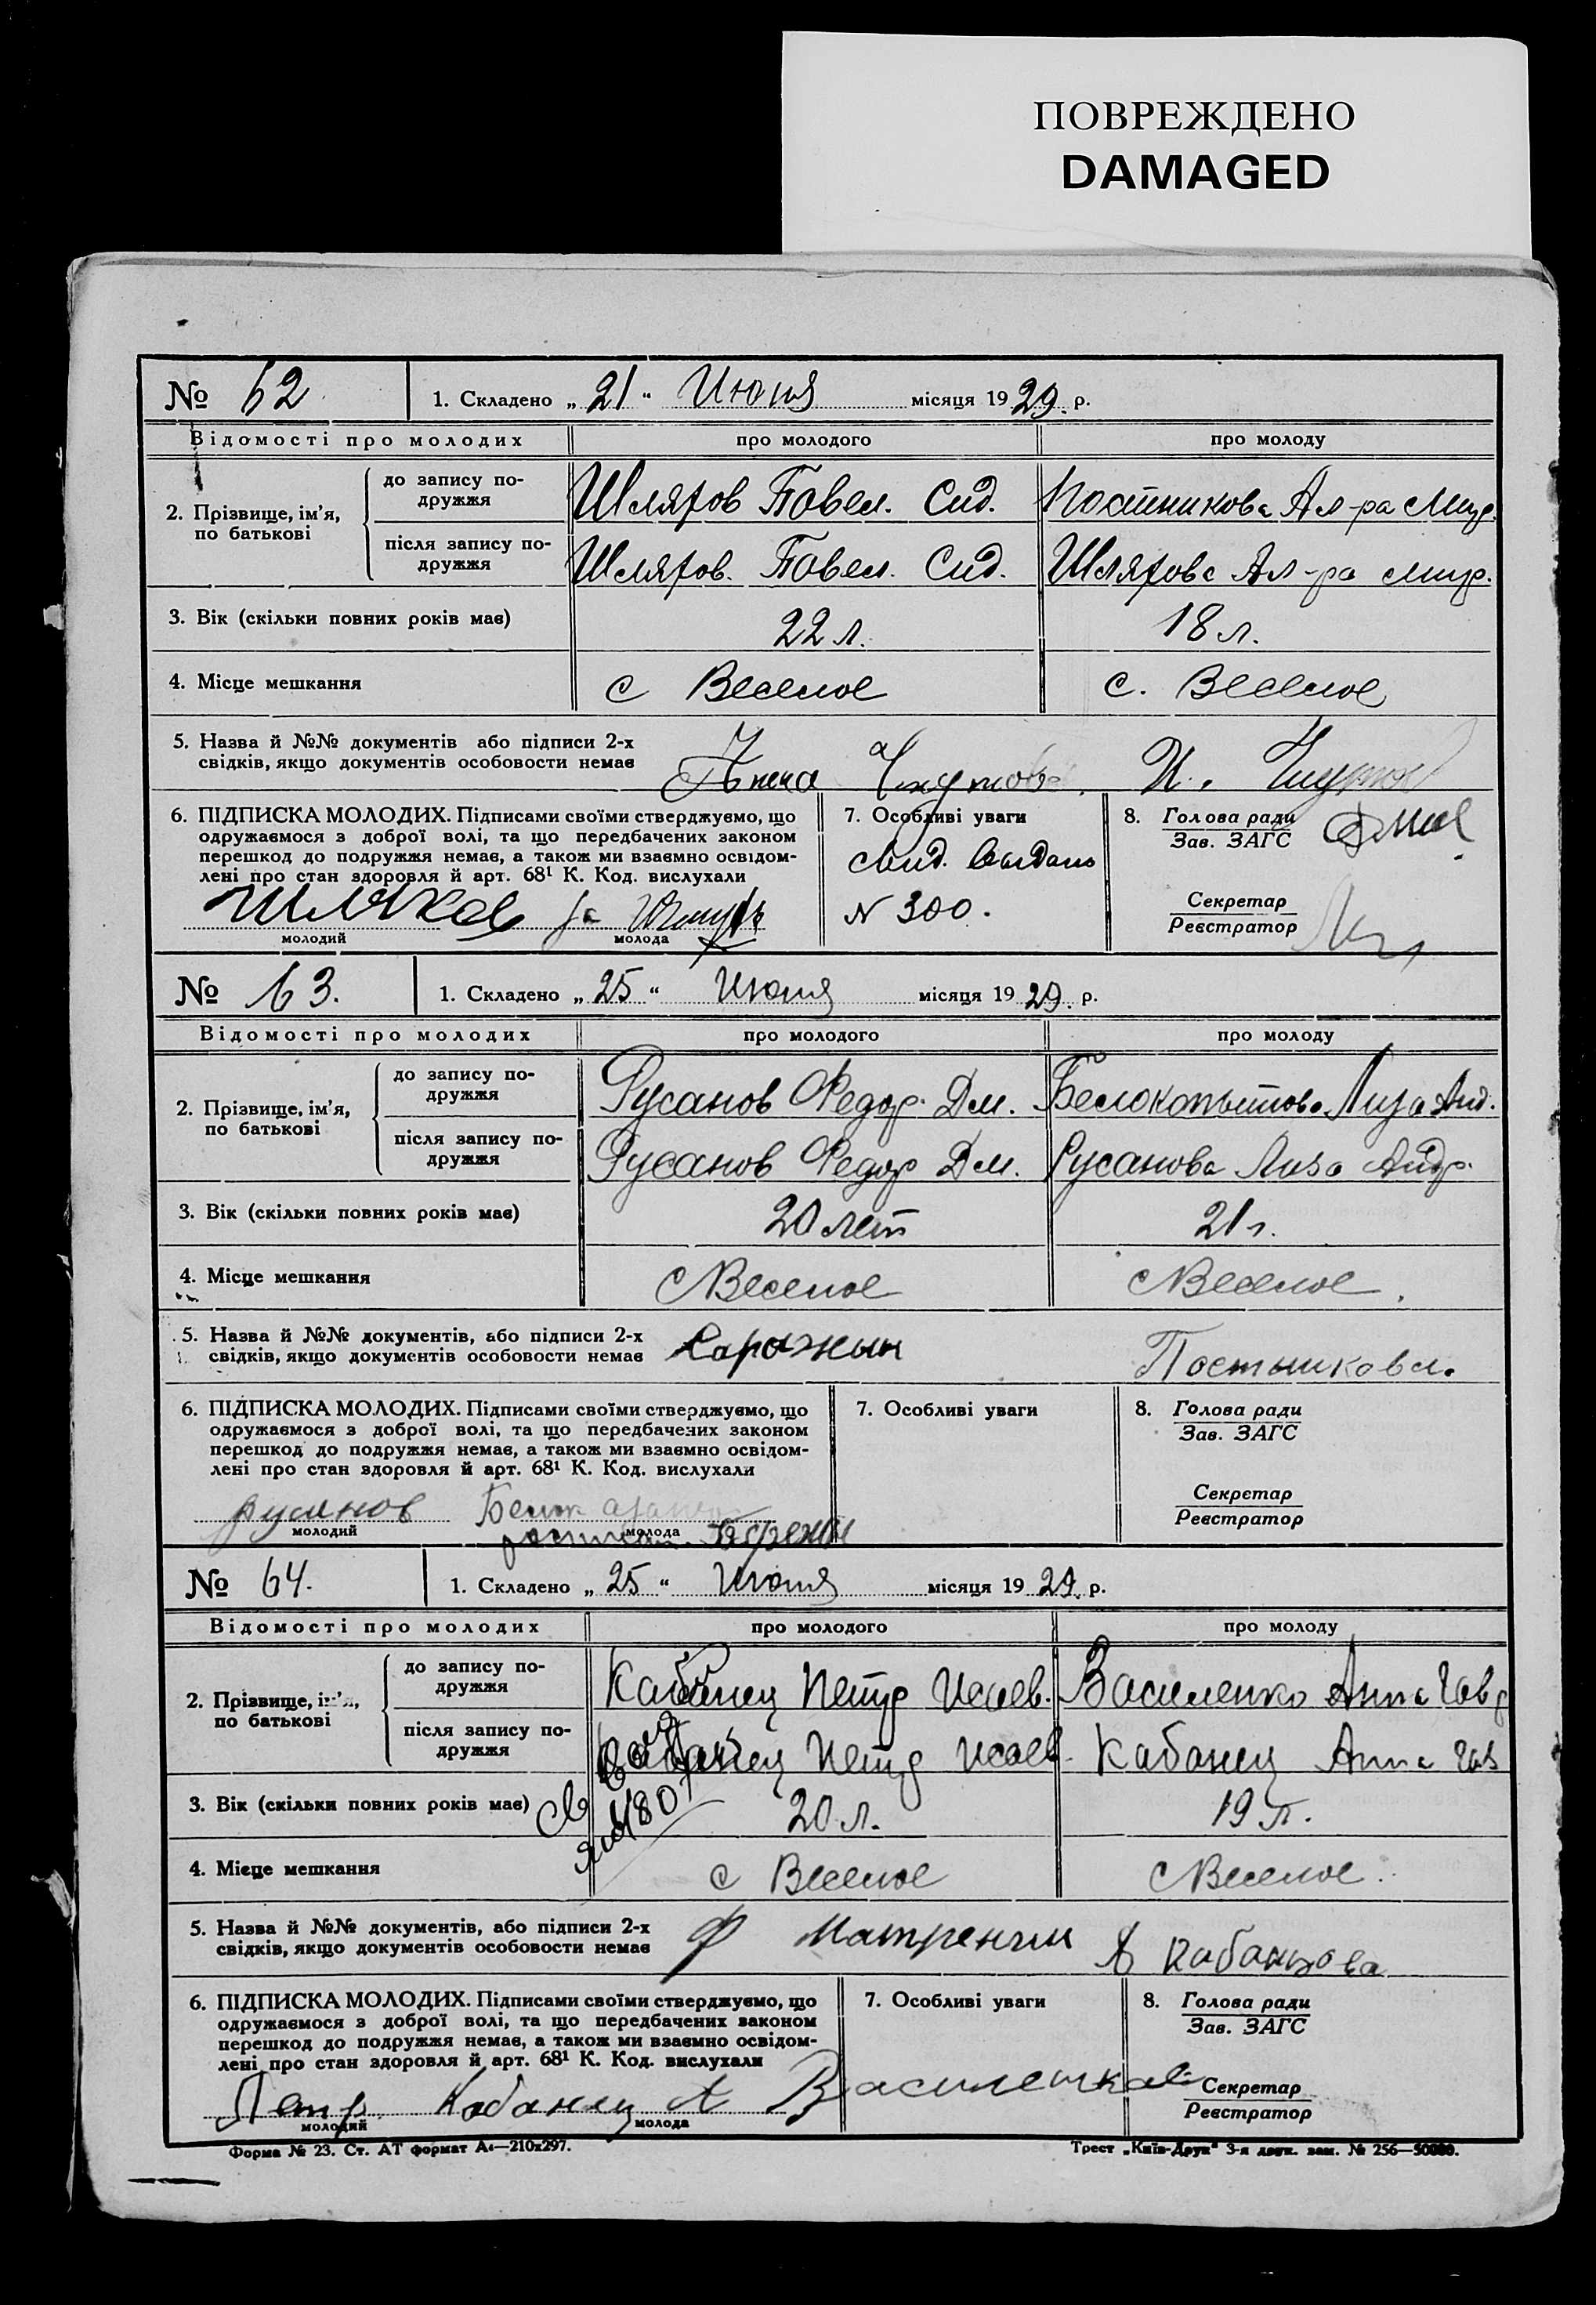 ПОВРЕЖДЕНО
DAMAGED
№ 62. 1. Складено „ 21 “ Июня місяця 1929. р.
Відомості про молодих про молодого про молоду
2. Прізвище, ім’я, по батькові
до запису подружжя Шляхов Павел. Сид. Постникова Ал-ра Мир.
після запису подружжя Шляхов. Павел. Сид. Шляхова Ал-ра Мир.
3. Вік (скільки повних років має) 22 л. 18 л.
4. Місце мешкання с Веселое с. Веселое
5. Назва й №№ документів або підписи 2-х
свідків, якщо документів особовости немає И.
6. ПІДПИСКА МОЛОДИХ. Підписами своїми стверджуємо, що
одружаємося з доброї волі, та що передбачених законом
перешкод до подружжя немає, а також ми взаємно освідом-
лені про стан здоровля й арт. 68¹ К. Код. вислухали
Шляхов за
молодий молода
7. Особливі уваги
выдано
N 300.
8. Голова ради
Зав. ЗАГС
Секретар
Реєстратор
№ 63. 1. Складено „ 25 “ Июня місяця 1929. р.
Відомості про молодих про молодого про молоду
2. Прізвище, ім’я, по батькові
до запису подружжя Русанов Федор. Дм. Белокопытова Лиза Анд.
після запису подружжя Русанов Федор Дм. Русанова Лиза Андр.
3. Вік (скільки повних років має) 20 лет 21 г.
4. Місце мешкання с Веселое с Веселое.
5. Назва й №№ документів, або підписи 2-х
свідків, якщо документів особовости немає Постникова.
6. ПІДПИСКА МОЛОДИХ. Підписами своїми стверджуємо, що
одружаємося з доброї волі, та що передбачених законом
перешкод до подружжя немає, а також ми взаємно освідом-
лені про стан здоровля й арт. 68¹ К. Код. вислухали
русанов
молодий молода
7. Особливі уваги
8. Голова ради
Зав. ЗАГС
Секретар
Реєстратор
№ 64. 1. Складено „ 25 “ Июня місяця 1929. р.
Відомості про молодих про молодого про молоду
2. Прізвище, ім’я, по батькові
до запису подружжя Кабанец Петр Исаев. Василенко Анна Гавр
після запису подружжя Кабанец Петр Исаев. Кабанец Анна Гав
3. Вік (скільки повних років має) 20 л. 19 л.
4. Місце мешкання с Веселое с Веселое.
5. Назва й №№ документів, або підписи 2-х
свідків, якщо документів особовости немає Ф Матренин Я Кабанцова
6. ПІДПИСКА МОЛОДИХ. Підписами своїми стверджуємо, що
одружаємося з доброї волі, та що передбачених законом
перешкод до подружжя немає, а також ми взаємно освідом-
лені про стан здоровля й арт. 68¹ К. Код. вислухали
Петр Кабанец А
молодий молода
7. Особливі уваги
8. Голова ради
Зав. ЗАГС
Секретар
Реєстратор
Форма № 23. Ст. АТ формат А₄—210х297. Трест „Київ-Друк“ 3-я друк. зам. № 256—50000.